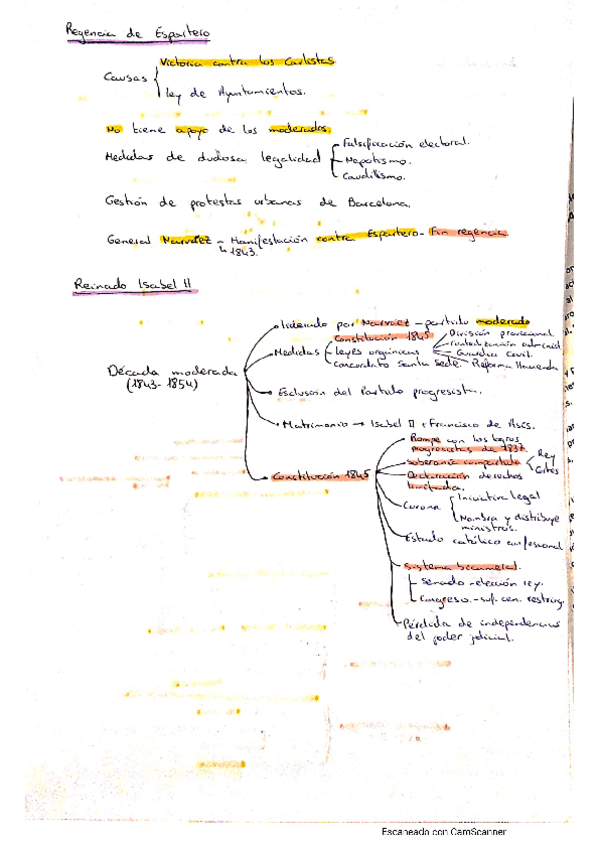 Regencia de Espartero
Victoria contra los Carlistas
Causas
ley de Ayuntamientos.
No tiene apoyo de los moderados.
Medidas de dudosa legalidad
Falsificación electoral.
Nepotismo.
Caudillismo.
Gestión de protestas urbanas de Barcelona.
General Narváez - Manifestación contra Espartero - Fin regencia
1843.
Reinado Isabel II
Década moderada
(1843-1854)
Liderado por Narváez - partido moderado
Medidas
Constitución 1845
leyes orgánicas
Concordato Santa Sede.
División provincial
centralización administ.
Guardia Civil.
Reforma Hacienda
Exclusión del Partido progresista.
Matrimonio → Isabel II + Francisco de Asís.
Constitución 1845
Rompe con los logros
progresistas de 1837.
Soberanía compartida
Rey
Cortes
Declaración derechos
limitada.
Corona
Iniciativa legal
Nombra y distribuye
ministros.
Estado católico confesional
Sistema bicameral.
Senado - elección rey.
Congreso. - suf. cen. restring.
Pérdida de independencia
del poder judicial.
Escaneado con CamScanner